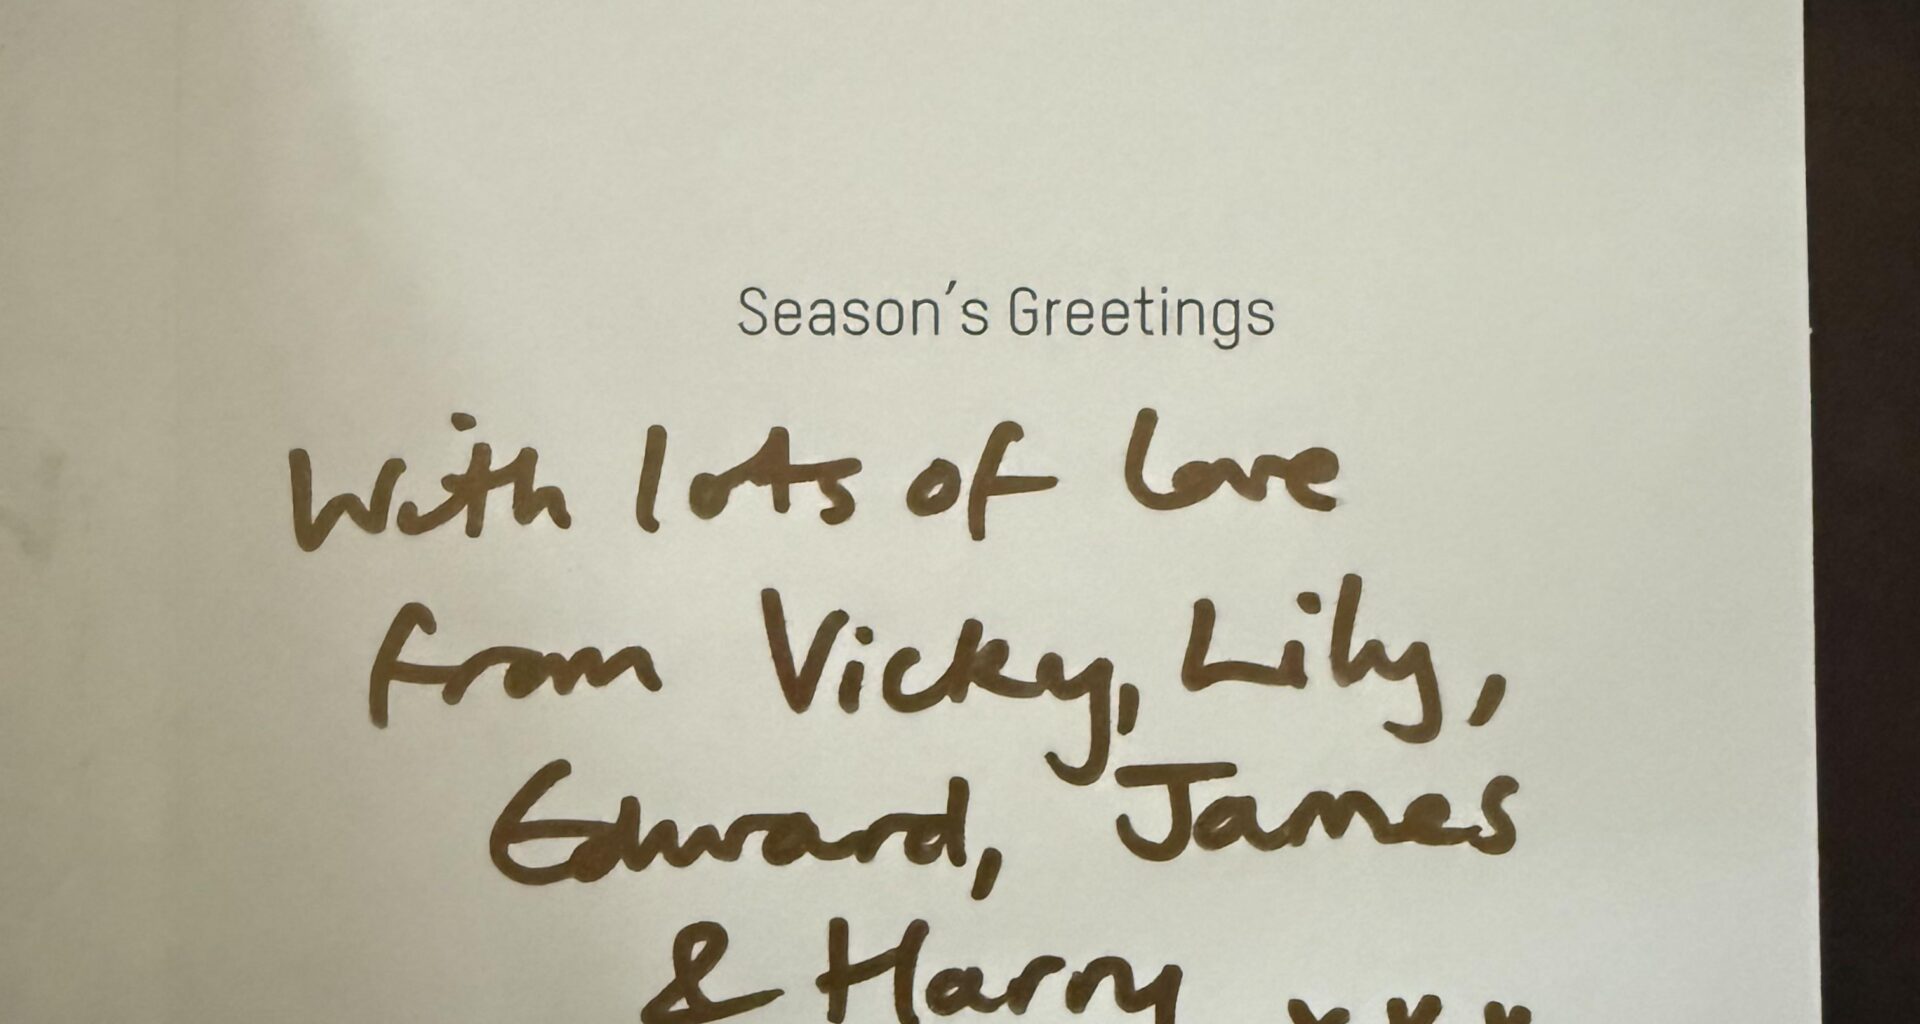 Season's Greetings
With lots of love
from Vicky, Lily,
Edward, James
& Harry xxx